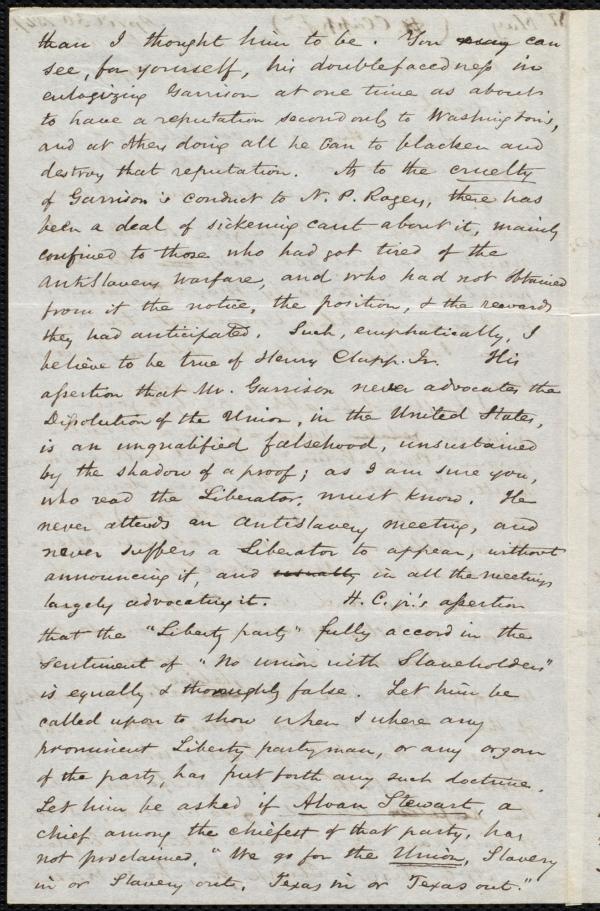 than I thought him to be. You can
see, for yourself, his doublefacedness in
eulogizing Garrison at one time as about
to have a reputation second only to Washington's,
and at others doing all he can to blacken and
destroy that reputation. As to the cruelty
of Garrison's conduct to N. P. Rogers, there has
been a deal of sickening cant about it, mainly
confined to those who had got tired of the
AntiSlavery warfare, and who had not obtained
from it the notice, the position, & the rewards
they had anticipated. Such, emphatically, I
believe to be true of Henry Clapp. Jr. His
assertion that Mr. Garrison never advocates the
Dissolution of the Union, in the United States,
is an unqualified falsehood, unsustained
by the shadow of a proof; as I am sure you,
who read the Liberator, must know. He
never attends an antislavery meeting, and
never suffers a Liberator to appear, without
announcing it, and usually in all the meetings
largely advocating it. H. C. jr.'s assertion
that the "Liberty party" fully accord in the
sentiment of "No union with Slaveholders"
is equally & thoroughly false. Let him be
called upon to show when & where any
prominent Liberty party man, or any organ
of the party, has put forth any such doctrine.
Let him be asked if Alvan Stewart, a
chief among the chiefest of that party, has
not proclaimed, "We go for the Union, Slavery
in or Slavery out, Texas in or Texas out."